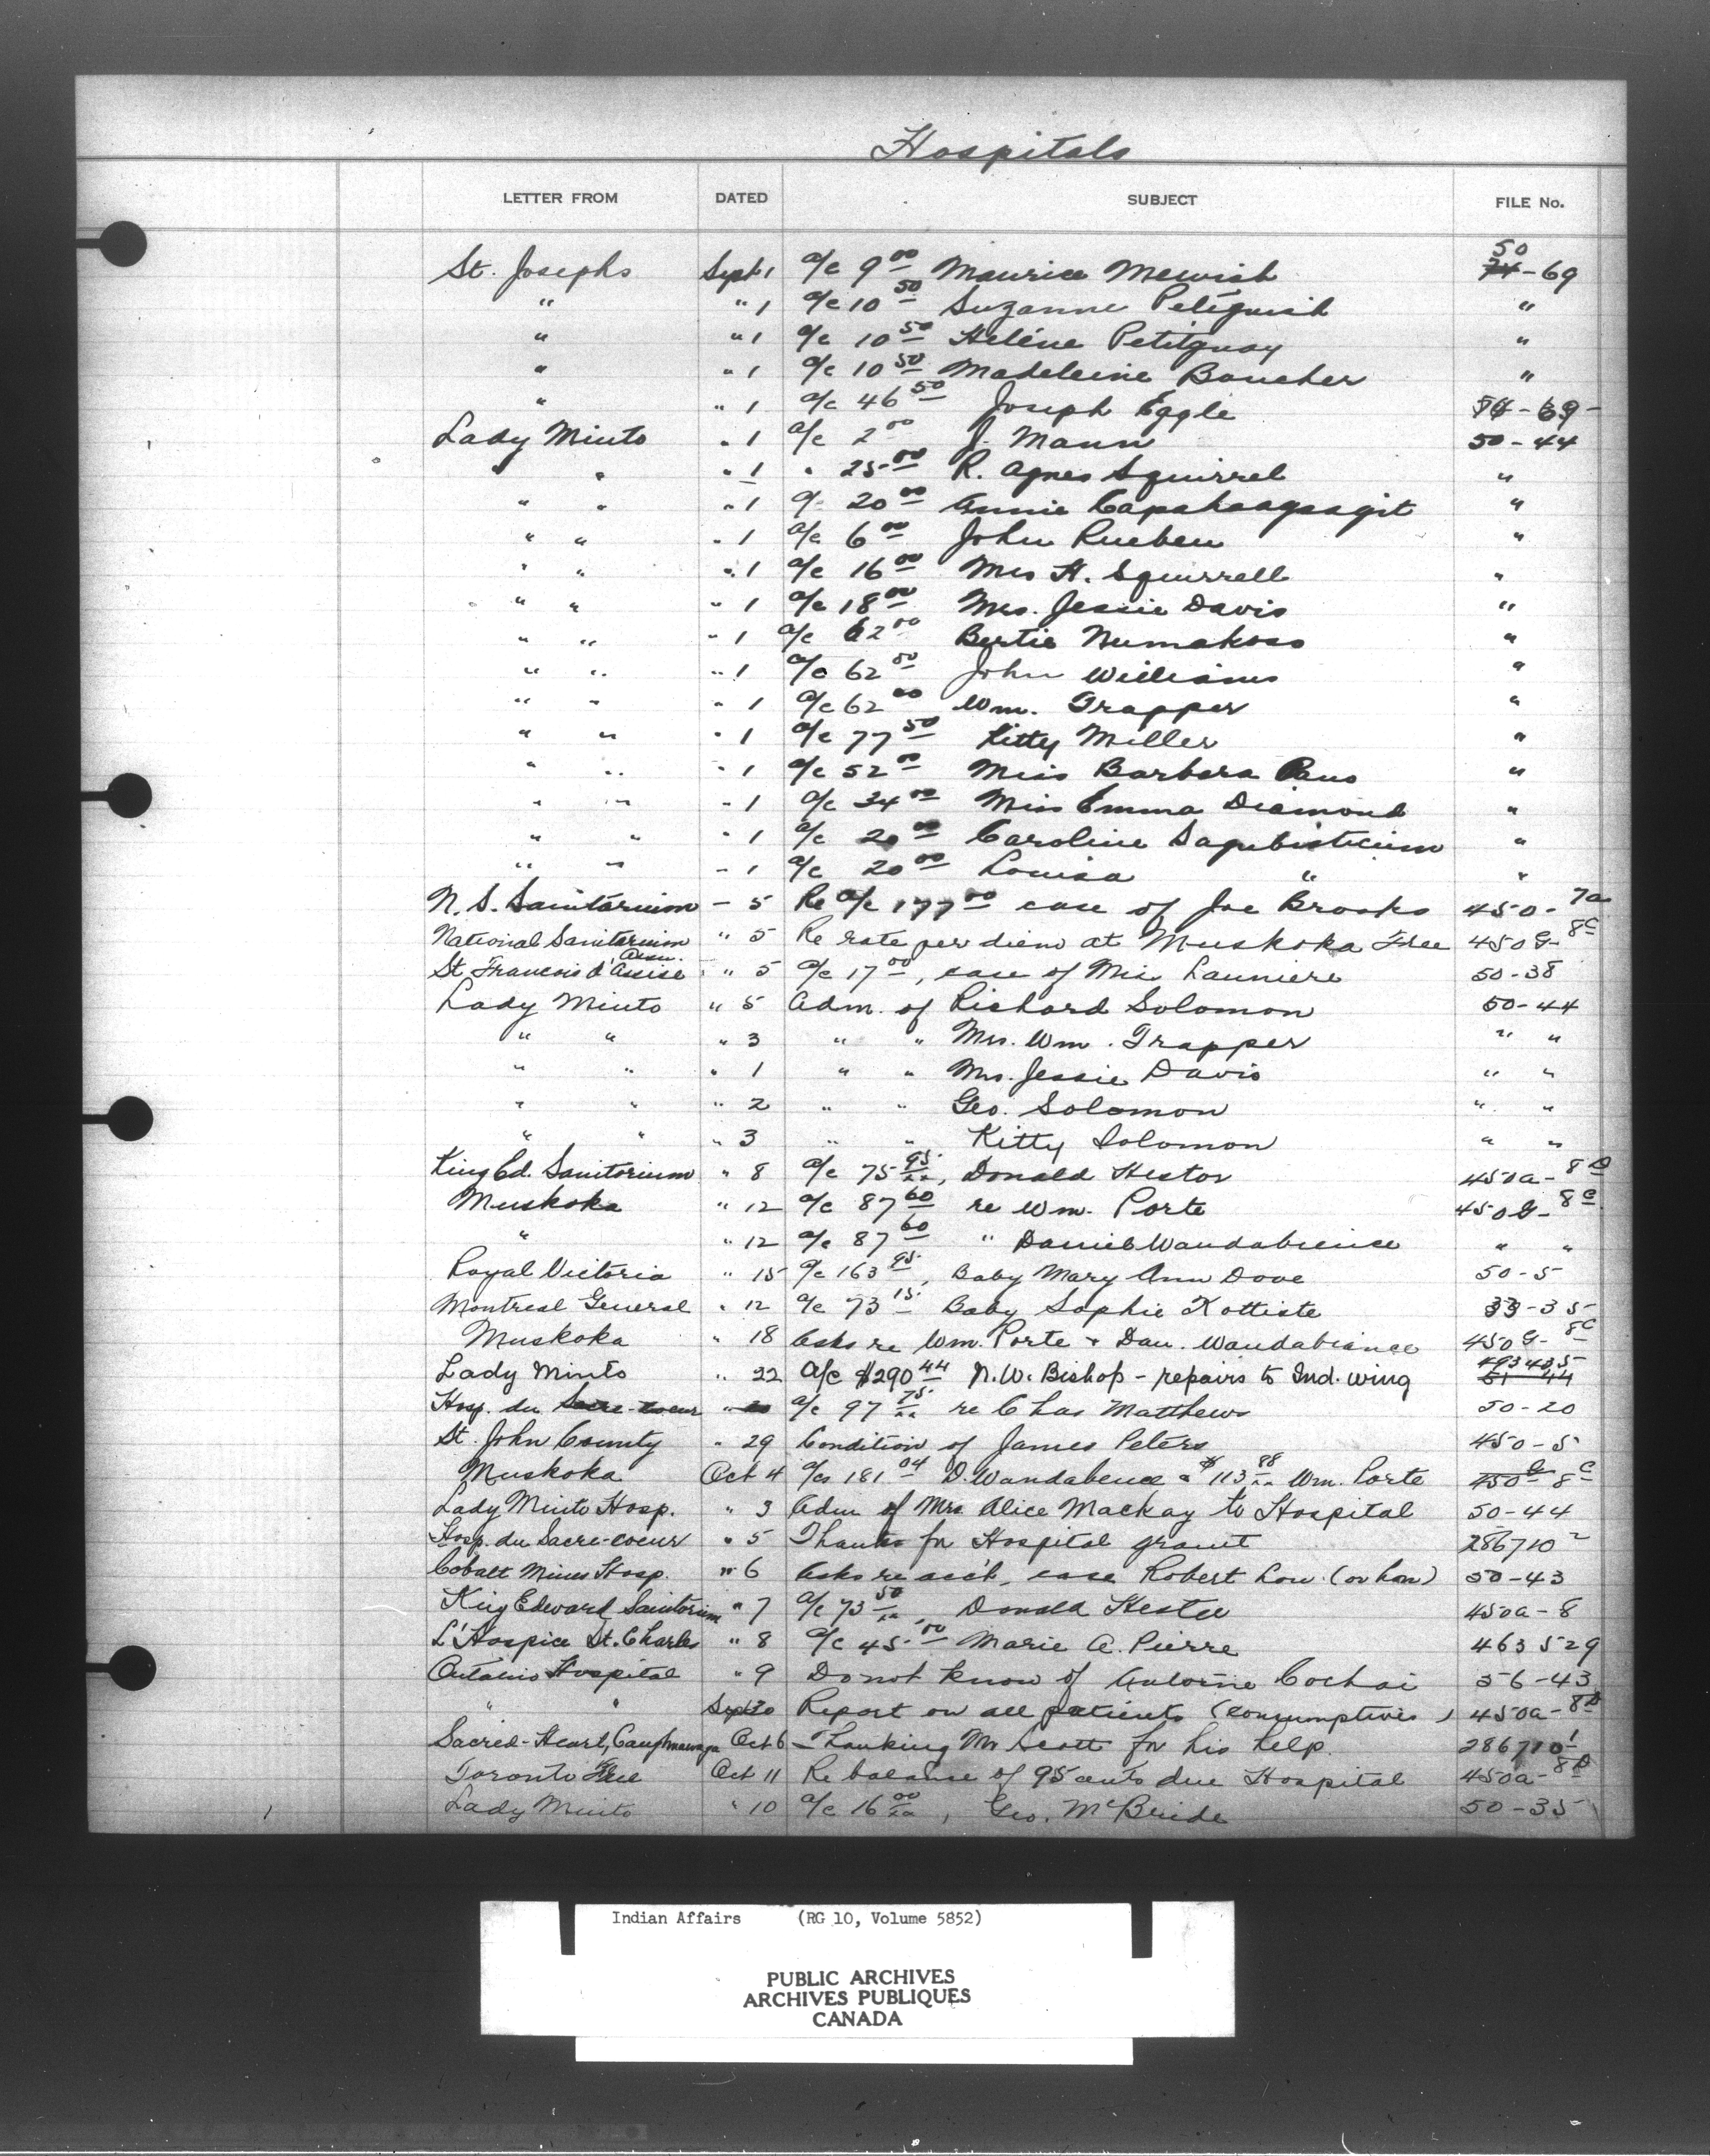 Hospitals
LETTER FROM DATED SUBJECT FILE No.
St. Josephs Sept 1 a/c 9 00 Maurice Mewish 50 74-69
" " 1 a/c 10 50 Suzanne Petiquish "
" " 1 a/c 10 50 Heléne Petitquay "
" " 1 a/c 10 50 Madeleine Boucher "
" " 1 a/c 46 50 Joseph Eggle 74-69-
Lady Minto " 1 a/c 2 00 J. Mann 50-44
" " " 1 " 25 00 R. Agnes Squirrel "
" " " 1 a/c 20 00 Annie "
" " " 1 a/c 6 00 John Rueben "
" " " 1 a/c 16 00 Mrs H. Squirrell "
" " " 1 a/c 18 00 Mrs. Jessie Davis "
" " " 1 a/c 62 00 Bertie Numakoss "
" " " 1 a/c 62 00 John Williams "
" " " 1 a/c 62 00 Wm. Trapper "
" " " 1 a/c 77 50 Kitty Miller "
" " " 1 a/c 52 00 Miss Barbara "
" " " 1 a/c 34 00 Miss Emma Diamond "
" " " 1 a/c 20 00 Caroline "
" " " 1 a/c 20 00 Louisa " "
N. S. Sanitarium - 5 Re a/c 177 00 case of Joe Brooks 450-7a
National Sanitarium Assn. " 5 Re rate per diem at Muskoka Free 450G-8c
St. Francois d'Assise " 5 a/c 17 00, case of Mis Launiere 50-38
Lady Minto " 5 Adm. of Richard Solomon 50-44
" " " 3 " " Mrs. Wm. Trapper " "
" " " 1 " " Mrs. Jessie Davis " "
" " " 2 " " Geo. Solomon " "
" " " 3 " " Kitty Solomon " "
King Ed. Sanitorium " 8 a/c 75 95, Donald Hestor 450a-8D
Muskoka " 12 a/c 87 60 re Wm. Porte 450G-8c
" " 12 a/c 87 60 " Daniel Wandabience " "
Royal Victoria " 15 a/c 163 95, Baby Mary Ann Dove 50-5
Montreal General " 12 a/c 73 15 Baby Sophie Kottiste 33-35
Muskoka " 18 Asks re Wm. Porte + Dan. Wandabiance 450G-8c
Lady Minto " 22 A/c $290 44 N.W. Bishop - repairs to Ind. wing 493435 51-44
Hosp. du Sacre-coeur " 20 a/c 97 75 re Chas Matthews 50-20
St. John County " 29 Condition of James Peters 450-5
Muskoka Oct 4 a/cs 181 04 D. Wandabence & $113 88 Wm. Porte 450G-8c
Lady Minto Hosp. " 3 Adm of Mrs. Alice Mackay to Hospital 50-44
Hosp. du Sacre-coeur " 5 Thanks for Hospital grant 286710 2
Cobalt Mines Hosp. " 6 Asks re acct, case Robert Low (or Lon) 50-43
King Edward Sanitorium " 7 a/c 73 50, Donald Hester 450a-8
L'Hospice St. Charles " 8 a/c 45 00 Marie A. Pierre 463529
Ontario Hospital " 9 Do not know of Antoine Cochai 56-43
" " Sept 30 Report on all patients (consumptives) 450a-8D
Sacred-Heart, Caughnawaga Oct 6 Thanking Mr Scott for his help. 286710 1
Toronto Free Oct 11 Re balance of 95 cents due Hospital 450a-8D
Lady Minto " 10 a/c 16 00, Geo. McBride 50-35
Indian Affairs (RG 10, Volume 5852)
PUBLIC ARCHIVES
ARCHIVES PUBLIQUES
CANADA